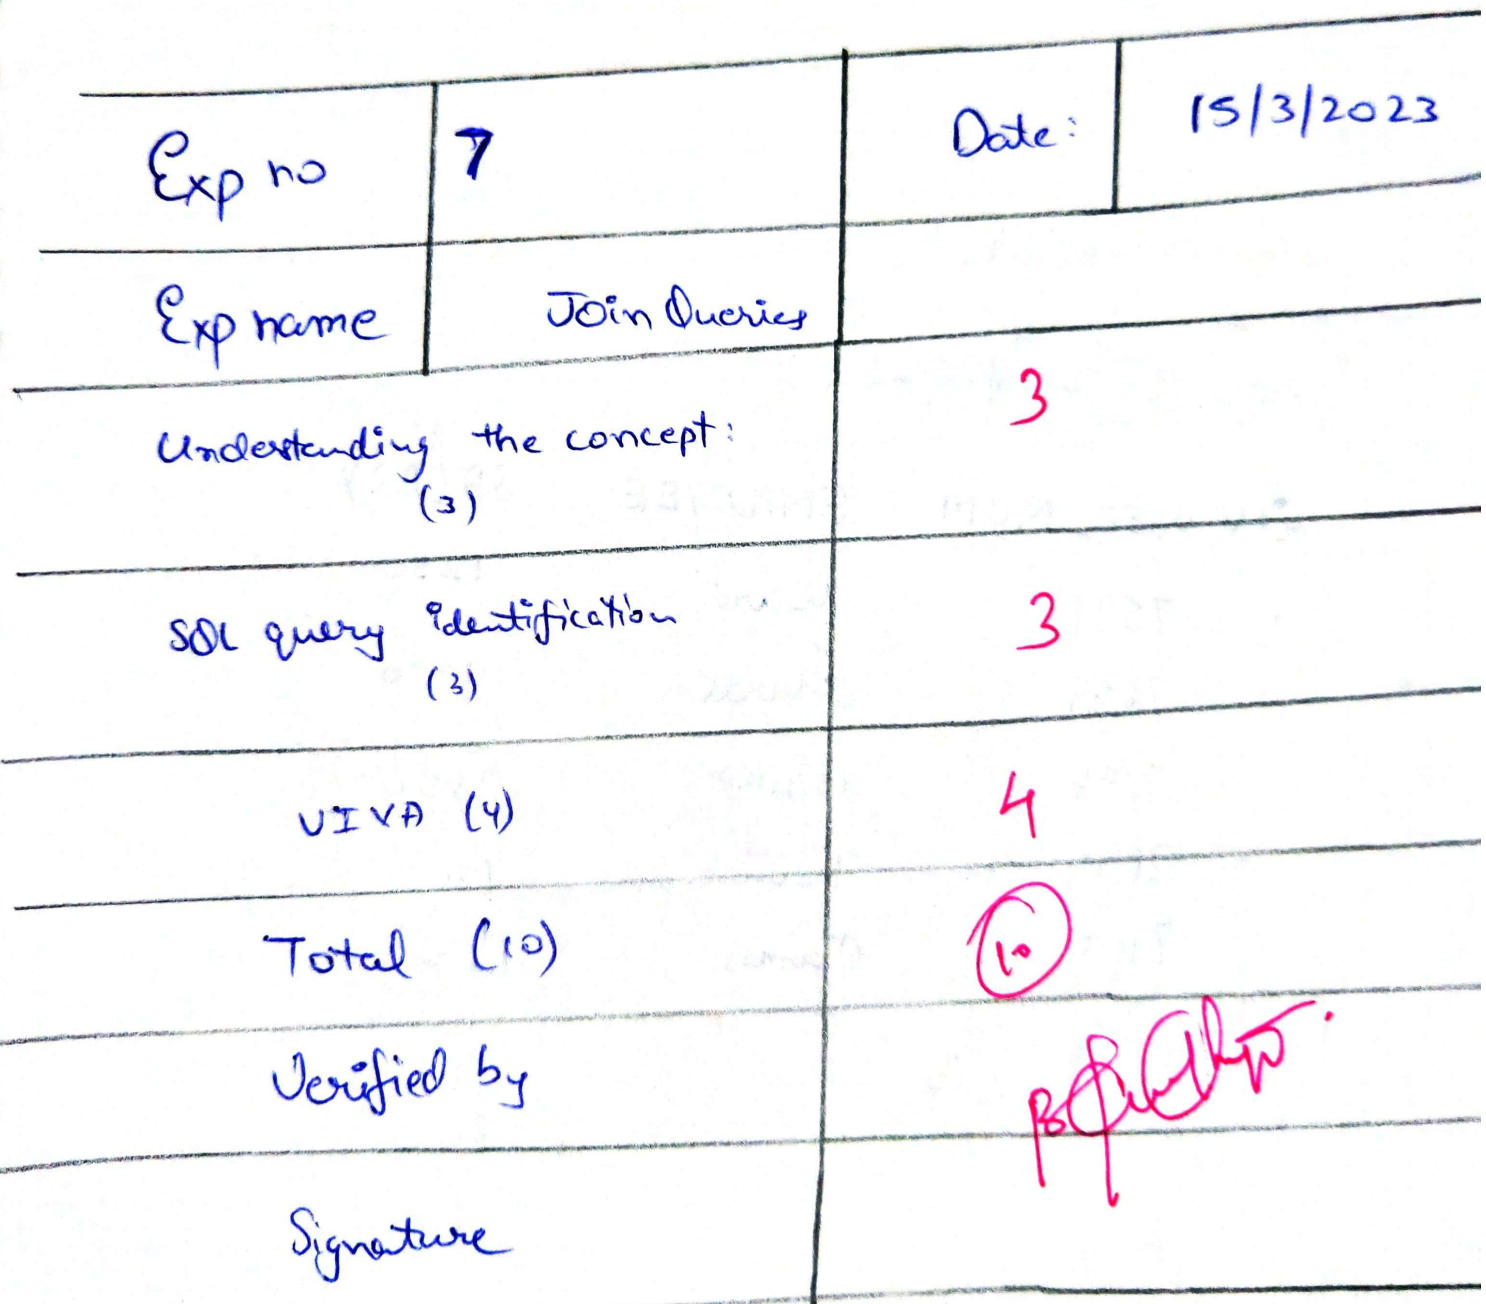 Exp no 7 Date: 15/3/2023
Exp name Join Queries
Understanding the concept: 3
(3)
SQL query identification 3
(3)
VIVA (4) 4
Total (10) 10
Verified by
Signature